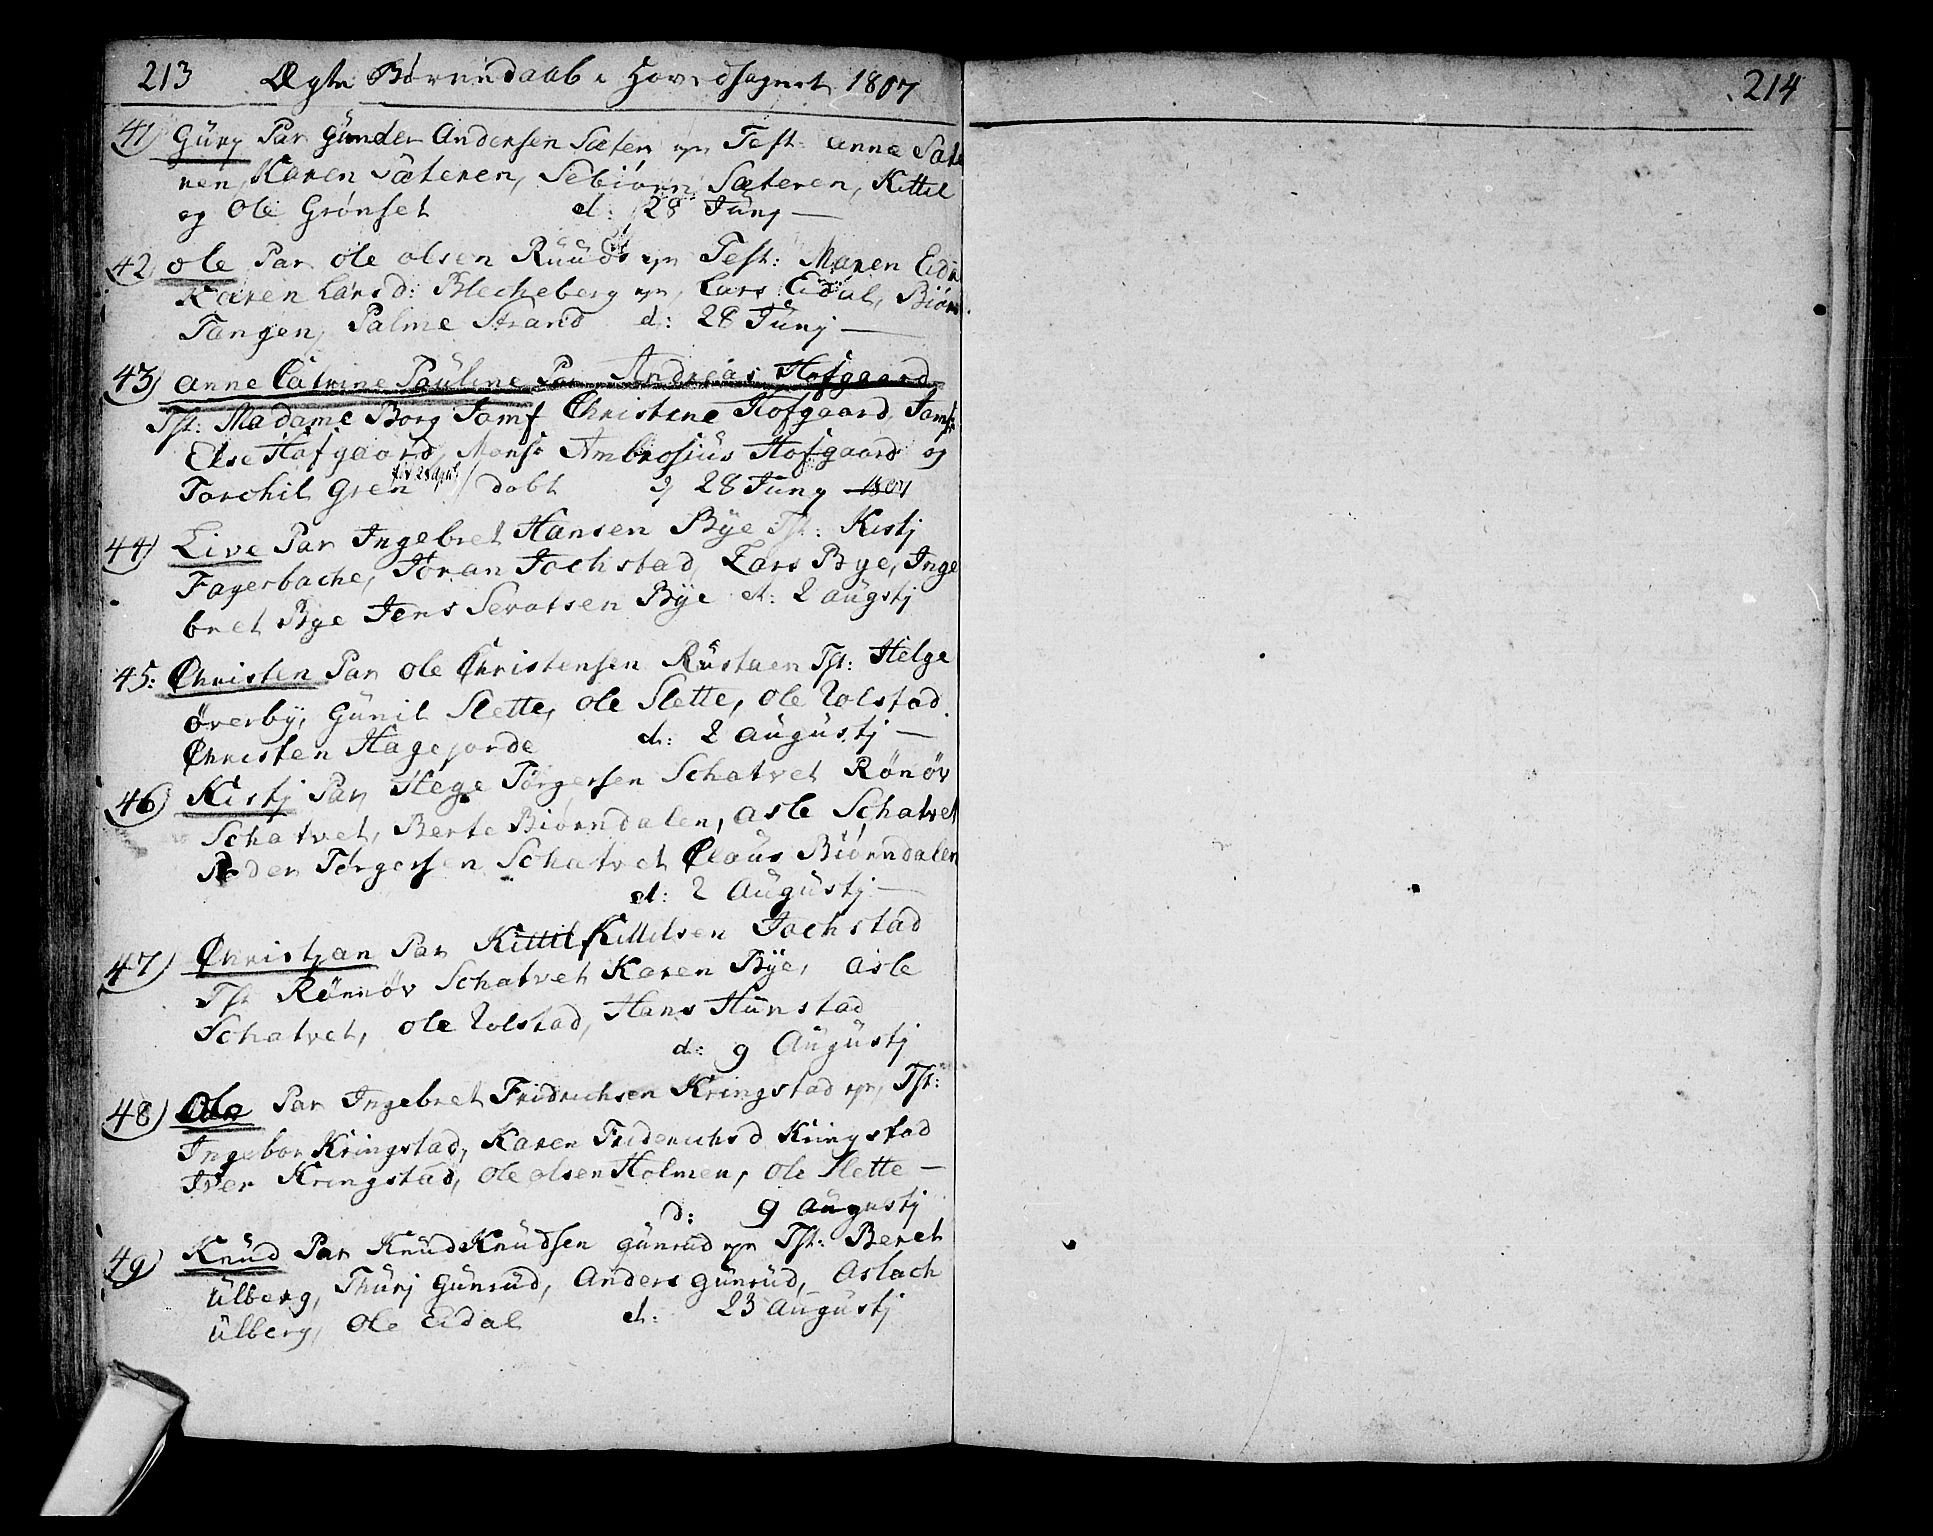 213 Ægte Børnedaab i Hovedsognet 1807
214
41) Gúnj Par Gúnder Andersen Sæteren Test: Anne Sæte
ren, Karen Sæteren, Sebiørn Sæteren, Kittil
og Ole Grønset d: 28 Júnj
42) Ole Par Ole Olsen Rúúds ejer Test: Maren Eida
Karen Larsd: Blecheberg ejer, Lars Eidal, Biørn
Tangen, Palme Strand d: 28 Júnj
43) Anne Catrine Paúline Par Andreas Hofgaard
Tst: Madame Borg Jomf Christine Hofgaard, Jomf
Else Hofgaard, Monsr Ambrosiús Hofgaard og
Torchil Gren døbt 28 Júnj
44) Live Par Ingebret Hansen Bye Tst: Kistj
Fagerbache, Joran Jochstad, Lars Bye, Inge
bret Bye Jens Sevatsen Bye d: 2 Aúgstj
45: Christen Par Ole Christensen Rústaen Tst: Helge
Øverby, Gúnil Slette, Ole Slette, Ole Tolstad
Christen Hagejorde d: 2 Aúgústj
46) Kistj Par Hege Tørgersen Schatvet Rønøv
Schatvet, Berte Biørndalen, Asle Schatvet
Peder Tørgersen Schatvet Claús Biørndalen
d: 2 Aúgústj
47) Christjan Par Kittil Kittilsen Jochstad
Tst Rønnøv Schatvet Karen Bye, Asle
Schatvet, Ole Tolstad, Hans Húnstad
d: 9 Aúgústj
48) Ole Par Ingebret Fridrichsen Kringstad ejer, Tst:
Ingebor Kringstad, Karen Friderichsd Kringstad
Iver Kringstad, Ole Olsen Holmen, Ole Slette
d: 9 Aúgústj
49) Knúd Par Knúd Knúdsen Gúnrúd ejer Tst: Beret
Úlberg, Thúrj Gúnrúd, Anders Gúnrúd, Aslach
Úlberg, Ole Eidal d: 23 Aúgústj